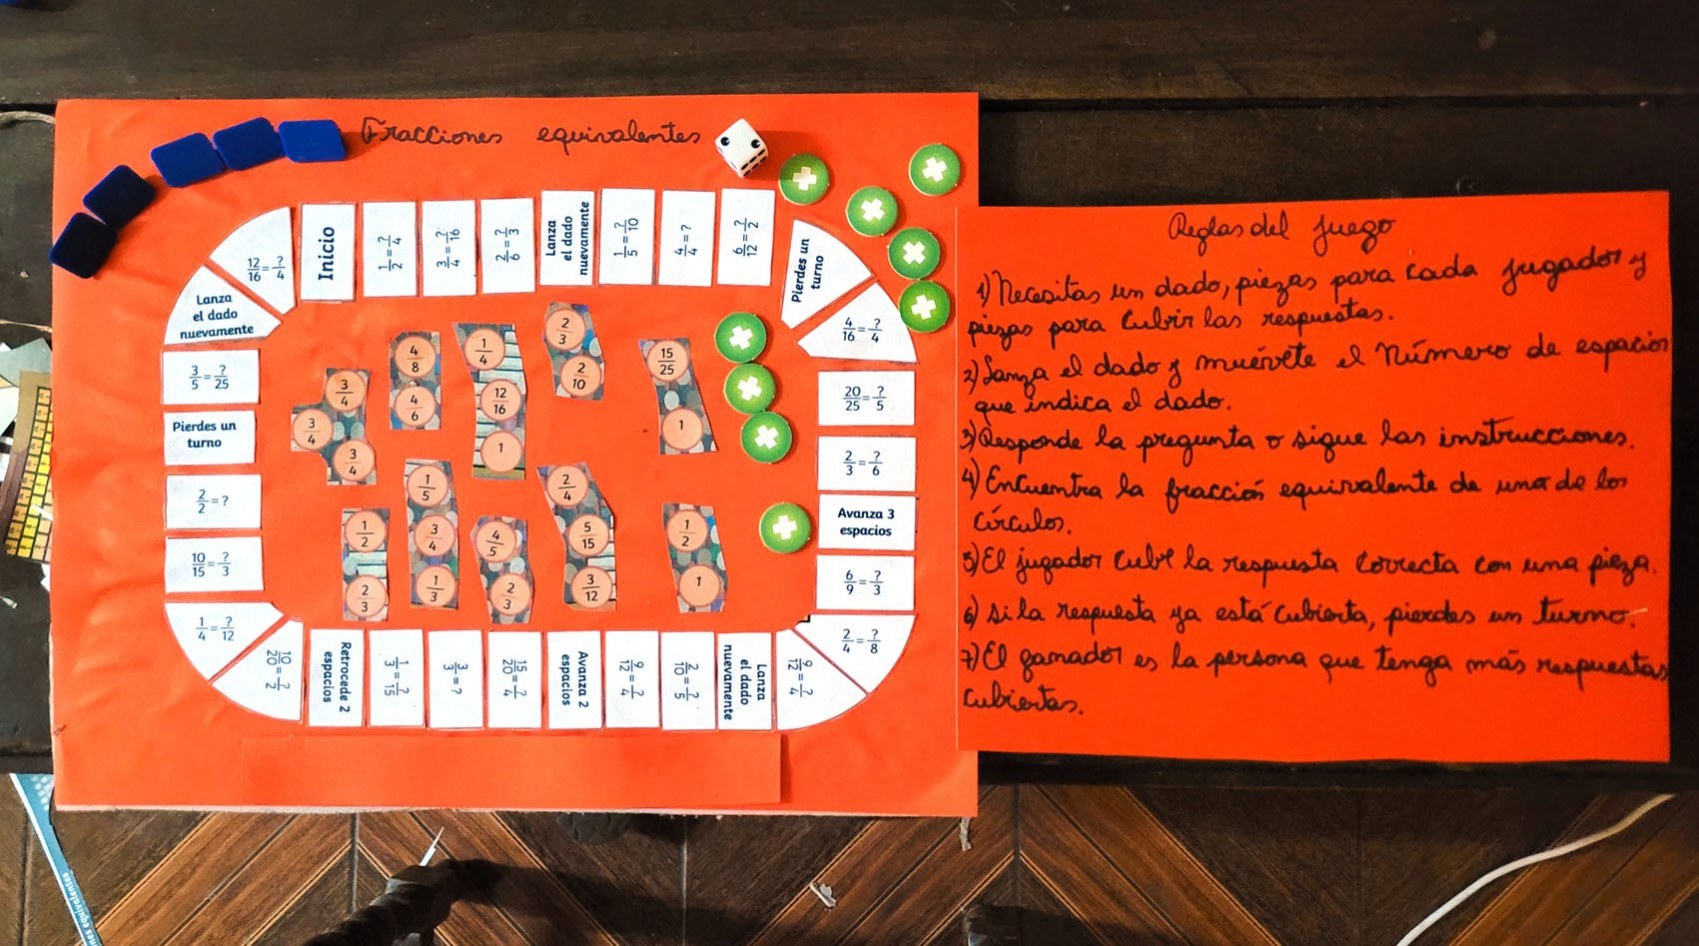 Fracciones equivalentes
Inicio
1/2 = ?/4
3/4 = ?/16
2/6 = ?/3
Lanza
el dado
nuevamente
1/5 = ?/10
4/4 = ?
6/12 = ?/2
Pierdes un
turno
4/16 = ?/4
20/25 = ?/5
2/3 = ?/6
Avanza 3
espacios
6/9 = ?/3
2/4 = ?/8
9/12 = ?/4
Lanza
el dado
nuevamente
2/10 = ?/5
9/12 = ?/4
Avanza 2
espacios
15/20 = ?/4
3/3 = ?
1/3 = ?/15
Retrocede 2
espacios
10/20 = ?/2
1/4 = ?/12
10/15 = ?/3
2/2 = ?
Pierdes un
turno
3/5 = ?/25
Lanza
el dado
nuevamente
12/16 = ?/4
3/4
3/4
3/4
4/8
4/6
1/4
12/16
1
2/3
2/10
15/25
1
1/2
2/3
1/5
3/4
1/3
4/5
2/3
2/4
5/15
3/12
1/2
1
Reglas del juego
1) Necesitas un dado, piezas para cada jugador y
piezas para cubrir las respuestas.
2) Lanza el dado y muévete el número de espacios
que indica el dado.
3) Responde la pregunta o sigue las instrucciones.
4) Encuentra la fracción equivalente de uno de los
círculos.
5) El jugador cubre la respuesta correcta con una pieza.
6) Si la respuesta ya está cubierta, pierdes un turno.
7) El ganador es la persona que tenga más respuestas
cubiertas.
equivalentes